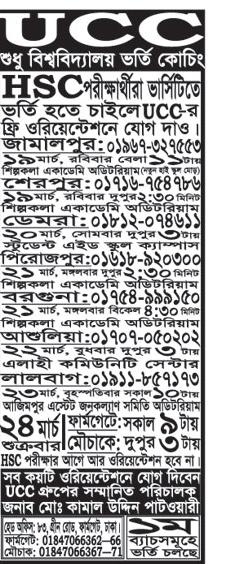 UCC
শুধু বিশ্ববিদ্যালয় ভর্তি কোচিং
HSC পরীক্ষার্থীরা ভার্সিটিতে
ভর্তি হতে চাইলে UCC-র
ফ্রি ওরিয়েন্টেশনে যোগ দাও।
জামালপুর: ০১৯৬৭-৩২৭৫৫৩
১৯ মার্চ, রবিবার বেলা ১১ টায়
শিল্পকলা একাডেমি অডিটরিয়াম (নতুন হাই স্কুল মোড়)
শেরপুর: ০১৭১৬-৭৫৪৭৮৬
১৯ মার্চ, রবিবার দুপুর ২:৩০ মিনিট
শিল্পকলা একাডেমি অডিটরিয়াম
ডেমরা: ০১৮১২-০৭৪৬১১
২০ মার্চ, সোমবার দুপুর ৩ টায়
স্টুডেন্ট এইড স্কুল ক্যাম্পাস
পিরোজপুর: ০১৬১৮-৯২০৩০০
২১ মার্চ, মঙ্গলবার দুপুর ২:৩০ মিনিট
শিল্পকলা একাডেমি অডিটরিয়াম
বরগুনা: ০১৭৫৪-৯৯৯১৫০
২১ মার্চ, মঙ্গলবার বিকেল ৪:৩০ মিনিট
শিল্পকলা একাডেমি অডিটরিয়াম
আশুলিয়া: ০১৭০৭-০৫০২০২
২২ মার্চ, বুধবার দুপুর ৩ টায়
এলাহী কমিউনিটি সেন্টার
লালবাগ: ০১৯১১-৮৫৭১৭৩
২৩ মার্চ, বৃহস্পতিবার সকাল ১০ টায়
আজিমপুর এস্টেট জনকল্যাণ সমিতি অডিটরিয়াম
২৪ মার্চ শুক্রবার
ফার্মগেট: সকাল ৯ টায়
মৌচাকে: দুপুর ৩ টায়
HSC পরীক্ষার আগে আর ওরিয়েন্টেশন হবে না।
সব কয়টি ওরিয়েন্টেশনে যোগ দিবেন
UCC গ্রুপের সম্মানিত পরিচালক
জনাব মোঃ কামাল উদ্দিন পাটওয়ারী
হেড অফিস: ৮৩, গ্রীন রোড, ফার্মগেট, ঢাকা।
ফার্মগেট: 01847066362—66
মৌচাক: 01847066367—71
১ম
ব্যাচসমূহে
ভর্তি চলছে